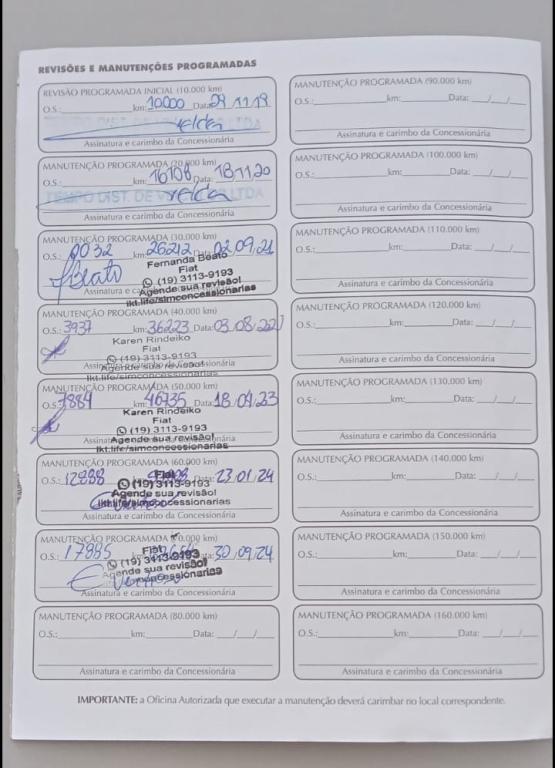 REVISÕES E MANUTENÇÕES PROGRAMADAS
REVISÃO PROGRAMADA INICIAL (10.000 km)
O.S.: km: 10000 Data: 29 11 19
TEMPO DIST. DE LTDA
Assinatura e carimbo da Concessionária
MANUTENÇÃO PROGRAMADA (20.000 km)
O.S.: km: 16108 Data: 18 11 20
TEMPO DIST. DE VE LTDA
Assinatura e carimbo da Concessionária
MANUTENÇÃO PROGRAMADA (30.000 km)
O.S.: 0032 km: 26212 Data: 02 09 21
Beato
Fernanda Beato
Fiat
(19) 3113-9193
Agende sua revisão!
Assinatura e carimbo da Concessionária
lkt.life/simconcessionarias
MANUTENÇÃO PROGRAMADA (40.000 km)
O.S.: 3937 km: 36223 Data: 03 08 22
Karen Rindeiko
Fiat
(19) 3113-9193
Assinatura e carimbo da Concessionária
Agende sua revisão!
lkt.life/simconcessionarias
MANUTENÇÃO PROGRAMADA (50.000 km)
O.S.: 7884 km: 46735 Data: 18 04 23
Karen Rindeiko
Fiat
(19) 3113-9193
Assinatura e carimbo da Concessionária
Agende sua revisão!
lkt.life/simconcessionarias
MANUTENÇÃO PROGRAMADA (60.000 km)
O.S.: 12888 km: Data: 23 01 24
Fiat
(19) 3113-9193
Agende sua revisão!
lkt.life/simconcessionarias
Assinatura e carimbo da Concessionária
MANUTENÇÃO PROGRAMADA (70.000 km)
O.S.: 17885 km: Data: 30 09 24
Fiat
(19) 3113-9193
Agende sua revisão!
simconcessionarias
Assinatura e carimbo da Concessionária
MANUTENÇÃO PROGRAMADA (80.000 km)
O.S.: km: Data: / /
Assinatura e carimbo da Concessionária
MANUTENÇÃO PROGRAMADA (90.000 km)
O.S.: km: Data: / /
Assinatura e carimbo da Concessionária
MANUTENÇÃO PROGRAMADA (100.000 km)
O.S.: km: Data: / /
Assinatura e carimbo da Concessionária
MANUTENÇÃO PROGRAMADA (110.000 km)
O.S.: km: Data: / /
Assinatura e carimbo da Concessionária
MANUTENÇÃO PROGRAMADA (120.000 km)
O.S.: km: Data: / /
Assinatura e carimbo da Concessionária
MANUTENÇÃO PROGRAMADA (130.000 km)
O.S.: km: Data: / /
Assinatura e carimbo da Concessionária
MANUTENÇÃO PROGRAMADA (140.000 km)
O.S.: km: Data: / /
Assinatura e carimbo da Concessionária
MANUTENÇÃO PROGRAMADA (150.000 km)
O.S.: km: Data: / /
Assinatura e carimbo da Concessionária
MANUTENÇÃO PROGRAMADA (160.000 km)
O.S.: km: Data: / /
Assinatura e carimbo da Concessionária
IMPORTANTE: a Oficina Autorizada que executar a manutenção deverá carimbar no local correspondente.